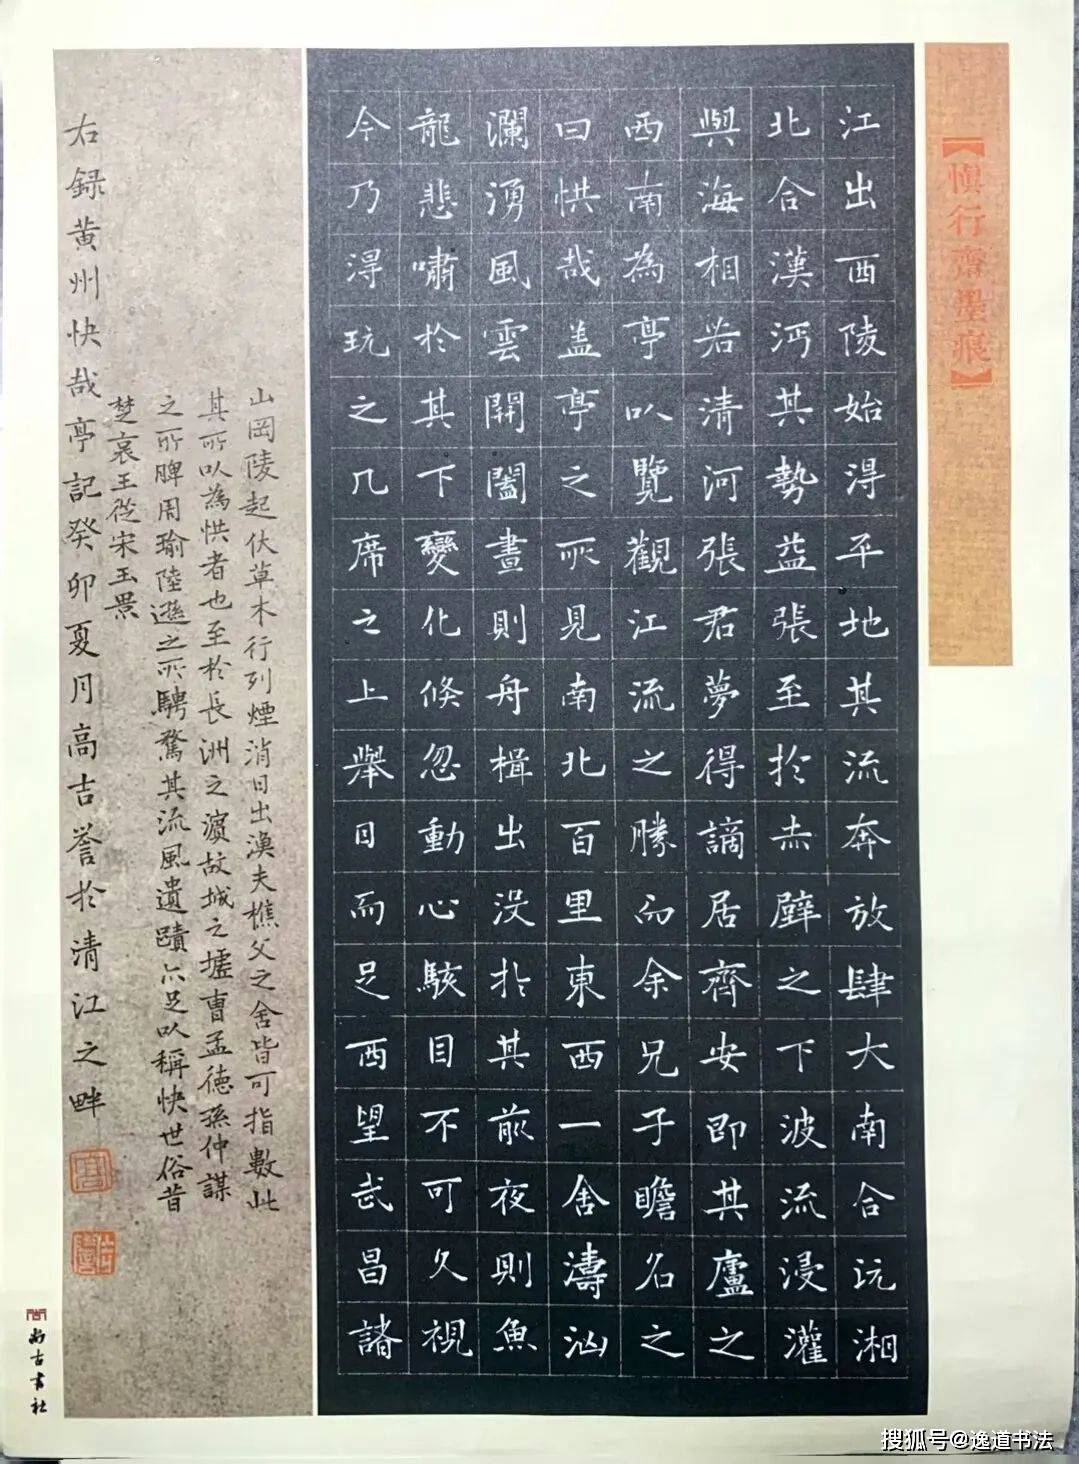 【慎行齋墨痕】
江出西陵始得平地其流奔放肆大南合沅湘
北合漢沔其勢益張至於赤壁之下波流浸灌
與海相若清河張君夢得謫居齊安即其廬之
西南為亭以覽觀江流之勝而余兄子瞻名之
曰快哉盖亭之所見南北百里東西一舍濤汹
瀾湧風雲開闔晝則舟楫出没於其前夜則魚
龍悲嘯於其下變化倏忽動心駭目不可久視
今乃得玩之几席之上舉目而足西望武昌諸
山岡陵起伏草木行列煙消日出漁夫樵父之舍皆可指數此
其所以為快者也至於長洲之濱故城之墟曹孟德孫仲謀
之所睥周瑜陸遜之所騁騖其流風遺蹟亦足以稱快世俗昔
楚襄王從宋玉景
右録黄州快哉亭記癸卯夏月高吉誉於清江之畔
古書社
搜狐号@逸道书法